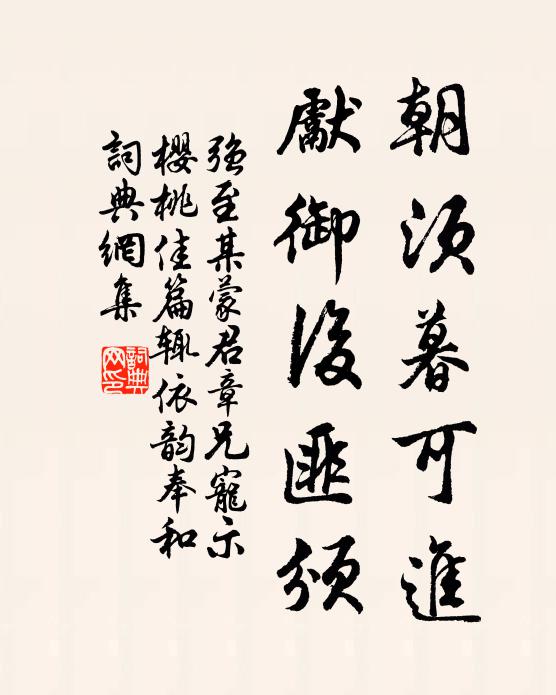 朝須暮可進
獻御後匪頒
强至某蒙君章兄寵示
櫻桃佳篇輒依韵奉和
詞典網集
詞典網印